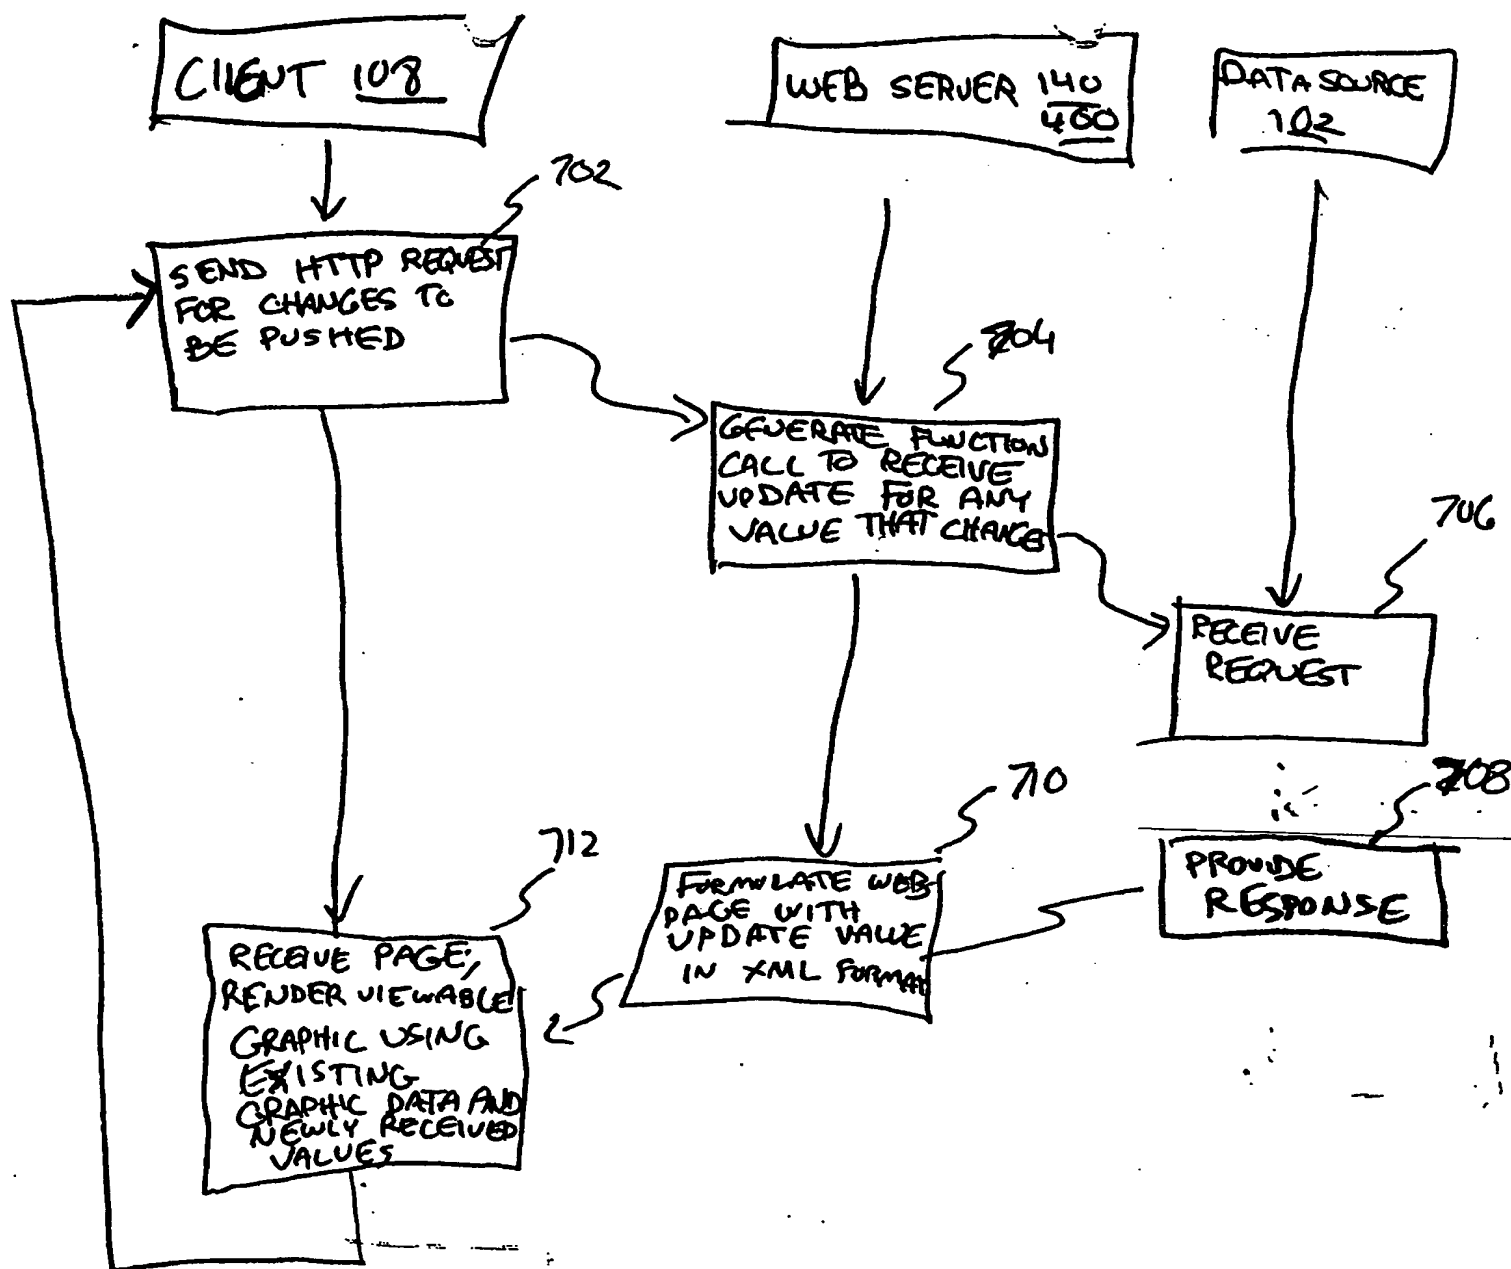 CLIENT 108
WEB SERVER 140
400
DATA SOURCE
102
702
SEND HTTP REQUEST
FOR CHANGES TO
BE PUSHED
704
GENERATE FUNCTION
CALL TO RECEIVE
UPDATE FOR ANY
VALUE THAT CHANGE
706
RECEIVE
REQUEST
708
PROVIDE
RESPONSE
710
FORMULATE WEB
PAGE WITH
UPDATE VALUE
IN XML FORMAT
712
RECEIVE PAGE;
RENDER VIEWABLE
GRAPHIC USING
EXISTING
GRAPHIC DATA AND
NEWLY RECEIVED
VALUES